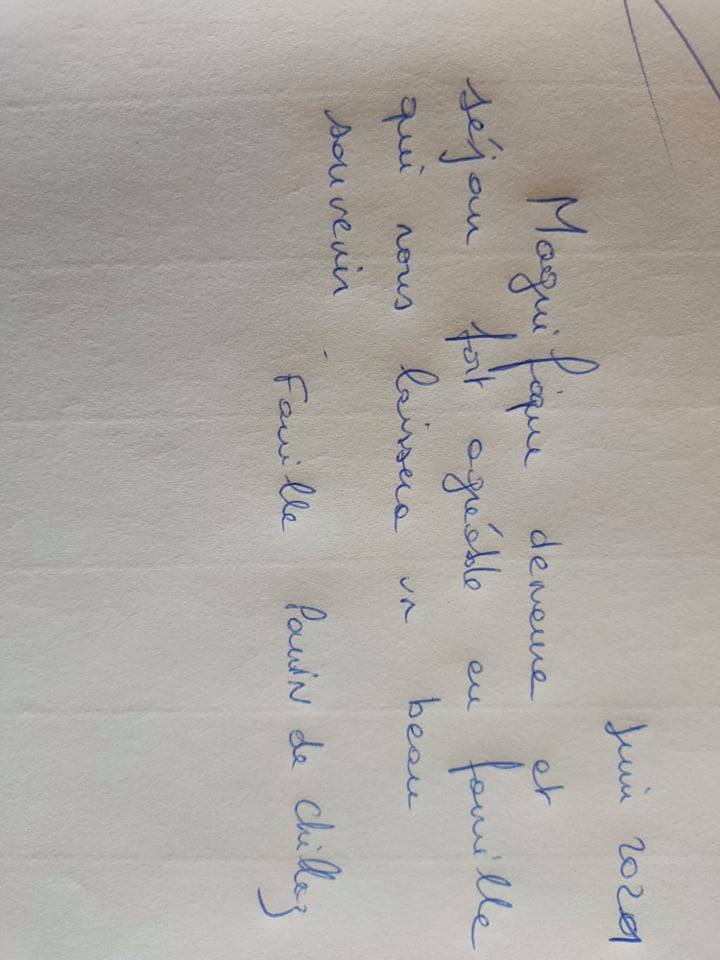 Juin 2021
Magnifique demeure et
séjour fort agréable en famille
qui nous laissera un beau
souvenir
Famille de Chillaz